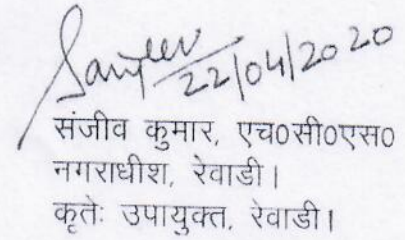 Sanjeev
22/04/2020
संजीव कुमार, एच०सी०एस०
नगराधीश, रेवाडी।
कृतेः उपायुक्त, रेवाडी।